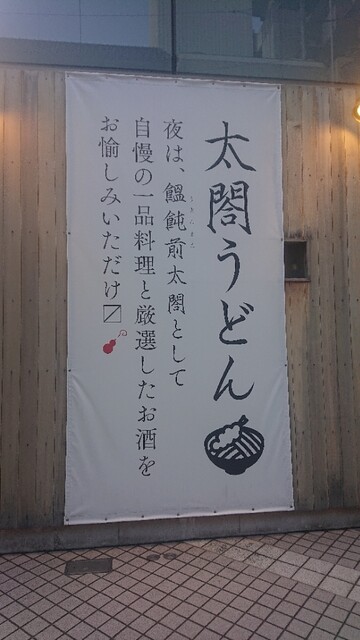 太閤うどん
夜は、饂飩前太閤として
自慢の一品料理と厳選したお酒を
お愉しみいただけ〼